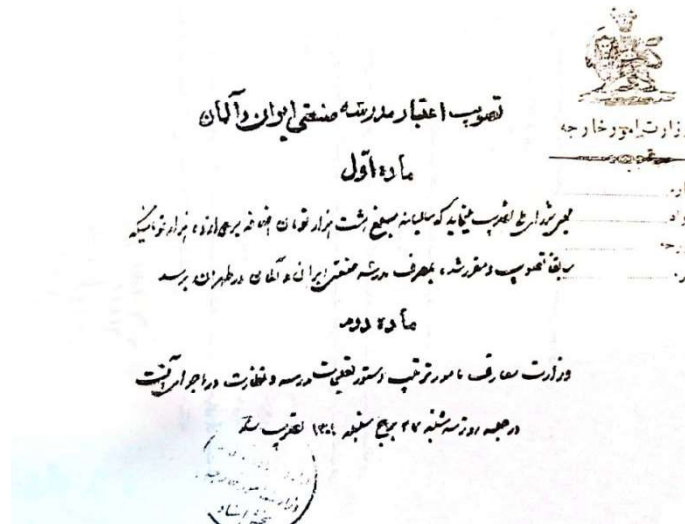 وزارت امور خارجه
تصویب اعتبار مدرسه صنعتی ایران و آلمان
ماده اول
مجلس شورای ملی تصویب مینماید که سالیانه مبلغ هشت هزار تومان اضافه بر دوازده هزار تومانیکه
سابقا تصویب و مقرر شده، بمصرف مدرسه صنعتی ایران و آلمان در طهران برسد
ماده دوم
وزارت معارف مامور ترتیب دستور تعلیمات مدرسه و نظارت در اجرای آنست
در جلسه روز سه شنبه ۲۷ برج سنبله ۱۳۰۱ تصویب شد